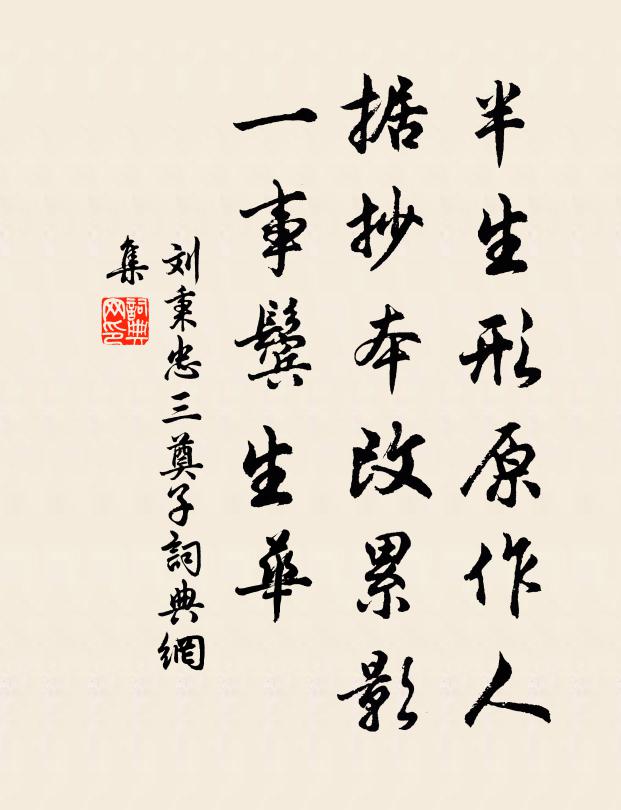 半生形原作人
据抄本改累影
一事鬓生華
刘秉忠三奠子詞典網
集
詞典网印